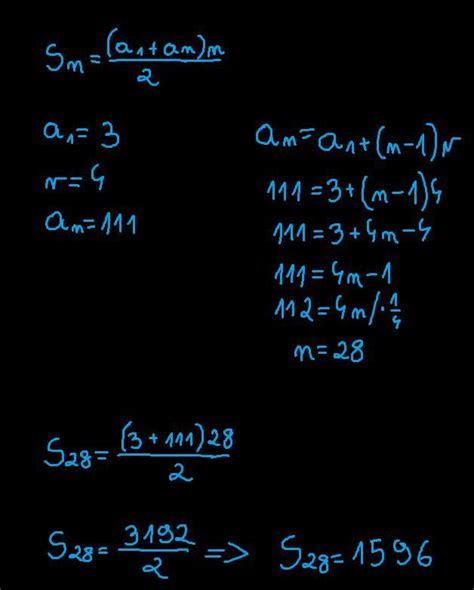 Sn = (a₁+an)n / 2
a₁ = 3
r = 4
an = 111
an = a₁+(n-1)r
111 = 3+(n-1)4
111 = 3+4n-4
111 = 4n-1
112 = 4n /·1/4
n = 28
S₂₈ = (3+111)28 / 2
S₂₈ = 3192 / 2 => S₂₈ = 1596